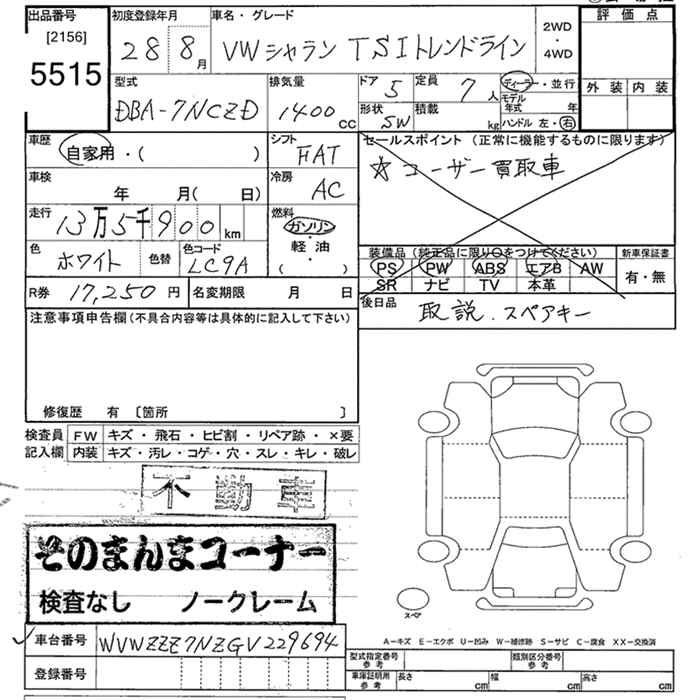 出品番号 初度登録年月 車名・グレード 2WD・4WD 評価点
[2156]
5515 28 8月 VWシャラン TSIトレンドライン 外装 内装
型式 排気量 ドア 5 定員 7人 ディーラー・並行
DBA-7NCZD 1400cc 形状 SW 積載 kg モデル年式 年
ハンドル 左・右
車歴 自家用・( ) シフト FAT セールスポイント(正常に機能するものに限ります)
☆ユーザー買取車
車検 年 月( 日) 冷房 AC
走行 13万5千900km 燃料 ガソリン・軽油 ( )
色 ホワイト 色替 色コード LC9A
装備品(純正品に限り○をつけてください) 新車保証書
PS PW ABS エアB AW 有・無
SR ナビ TV 本革
R券 17,250円 名変期限 月 日 後日品 取説.スペアキー
注意事項申告欄(不具合内容等は具体的に記入して下さい)
修復歴 有 〔箇所 〕
検査員 FW キズ・飛石・ヒビ割・リペア跡・×要
記入欄 内装 キズ・汚レ・コゲ・穴・スレ・キレ・破レ
不動車
そのまんまコーナー
検査なし ノークレーム
スペア
A-キズ E-エクボ U-凹み W-補修跡 S-サビ C-腐食 XX-交換済
車台番号 WVWZZZ7NZGV229694
型式指定番号 参考 類別区分番号 参考
登録番号 車庫証明用 参考 長さ cm 幅 cm 高さ cm